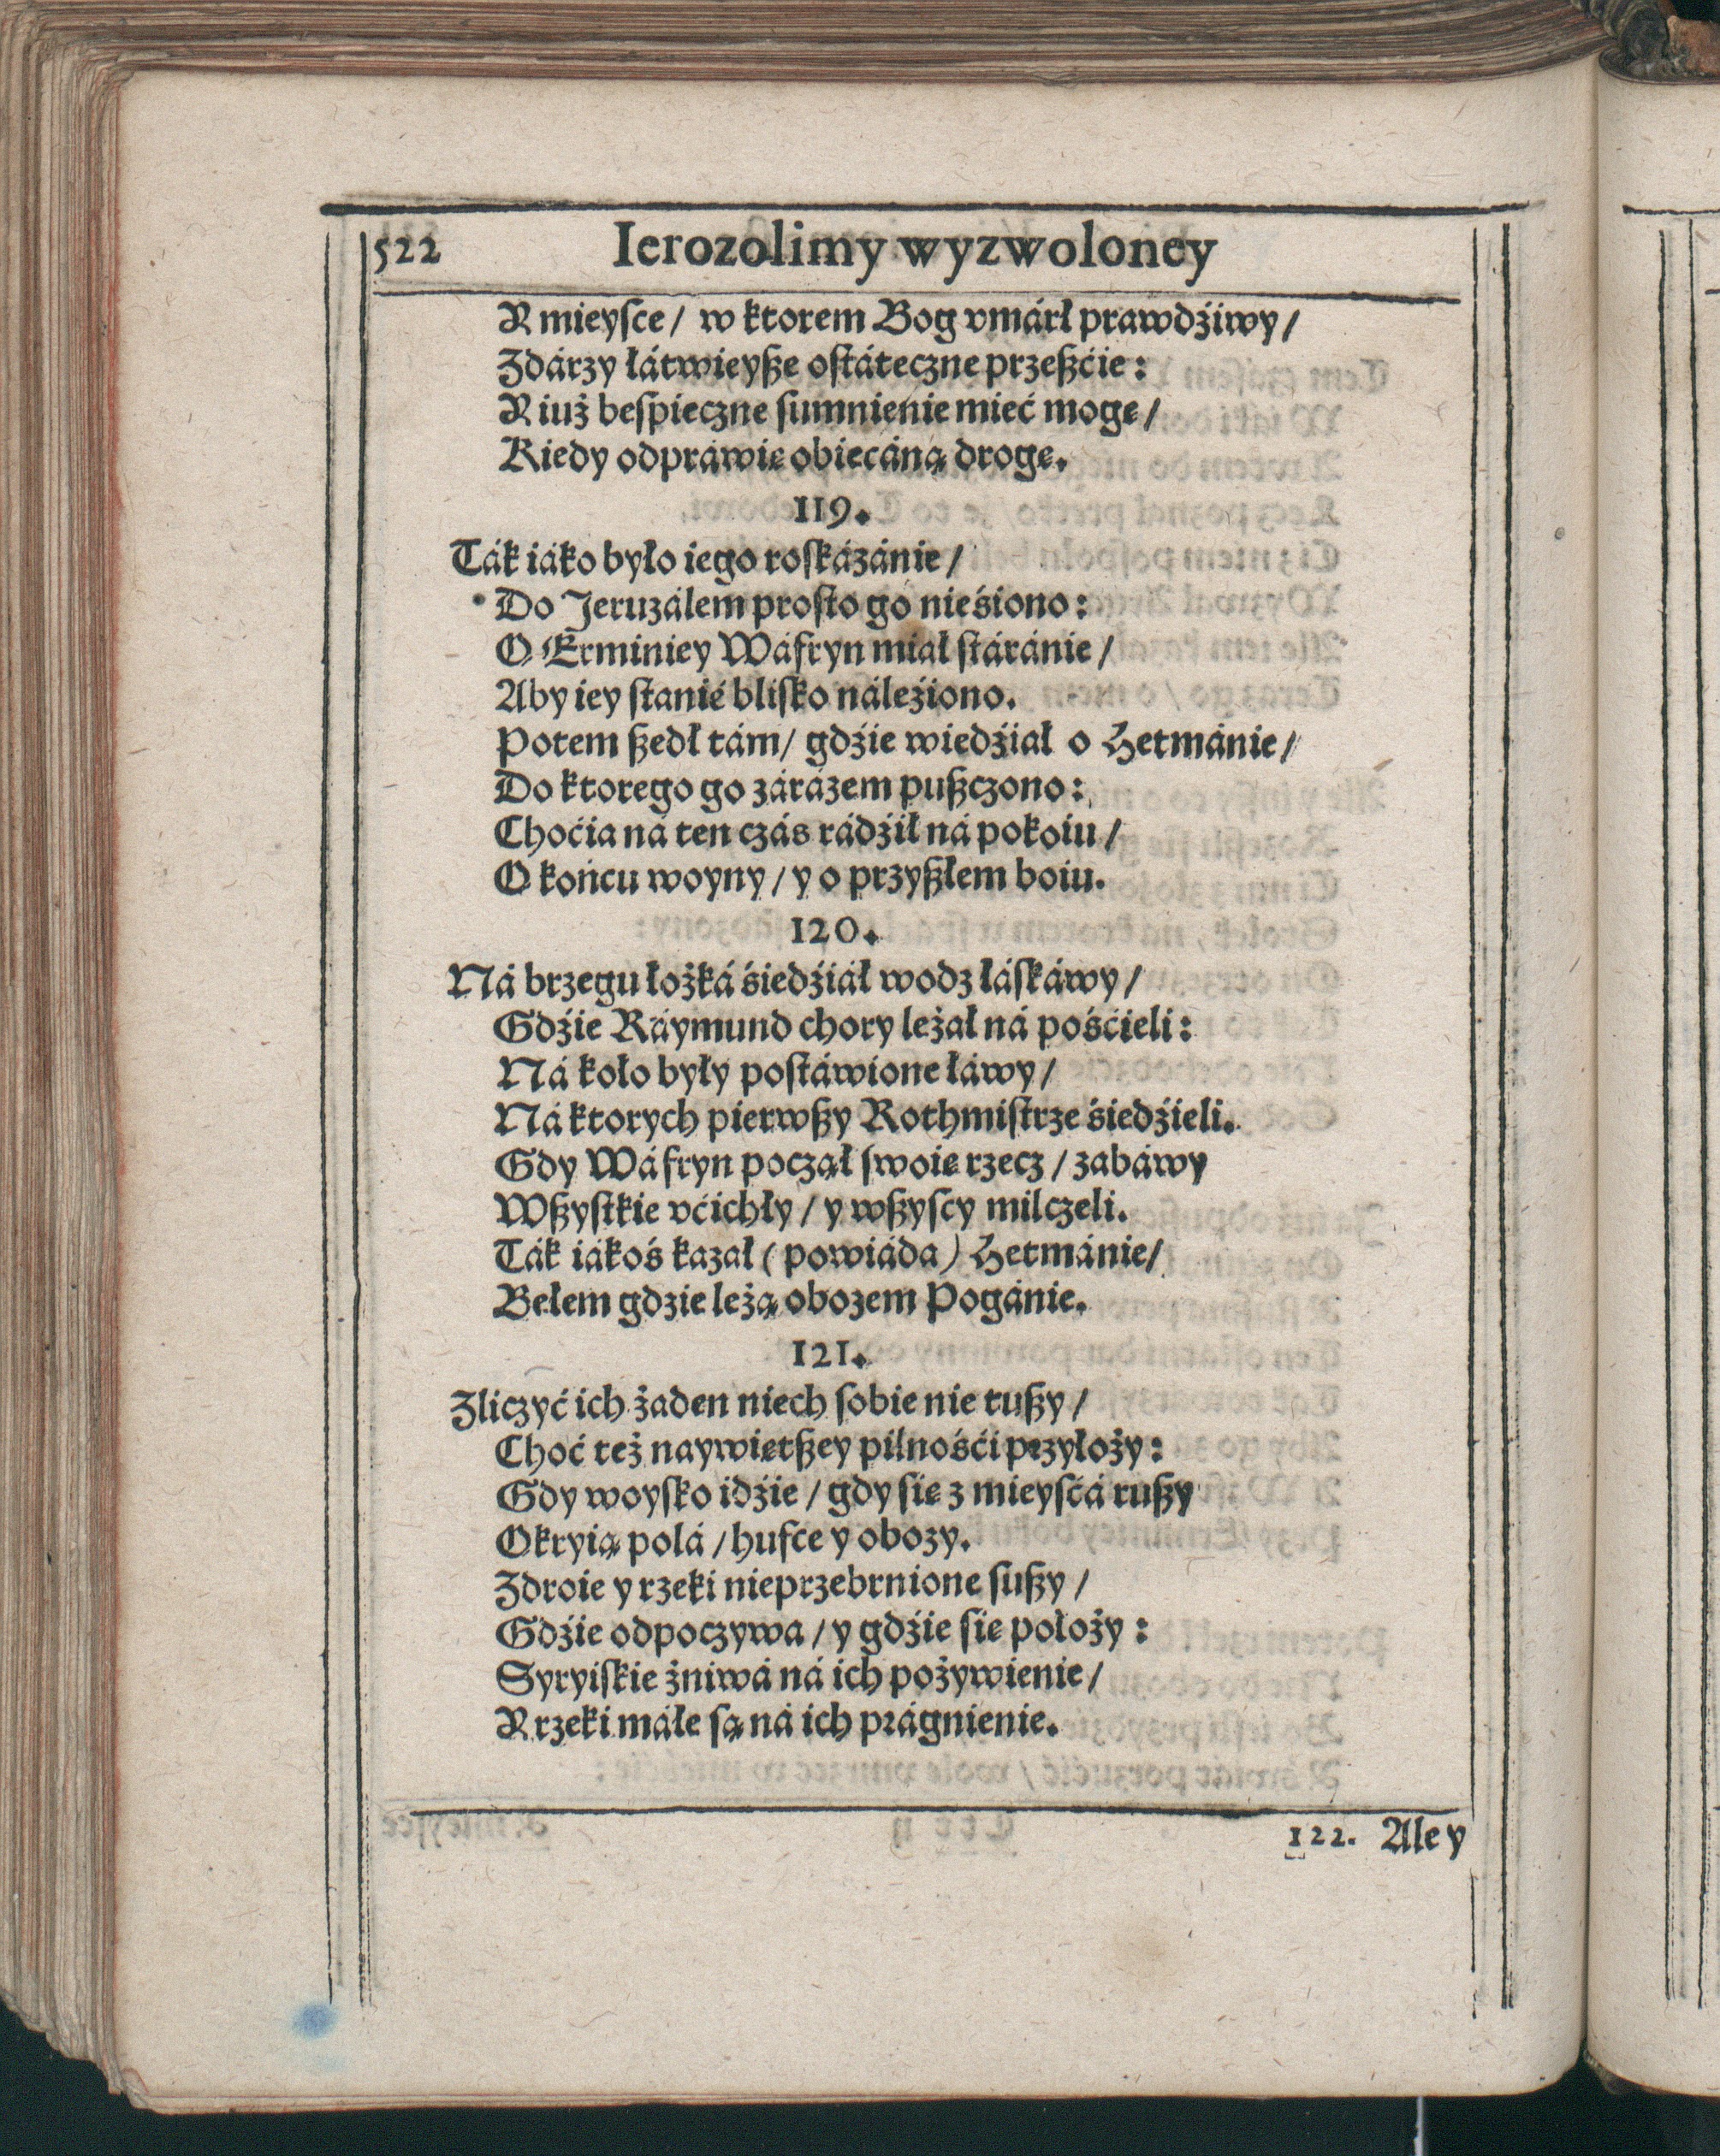 522 Ierozolimy wyzwoloney
A mieyſce / w ktorem Bog vmárł prawdźiwy /
Zdárzy łátwieyße oſtáteczne przeßćie :
A iuż beſpieczne ſumnienie mieć mogę /
Kiedy odpráwię obiecáną drogę.
119.
Ták iáko było iego roſkázánie /
Do Jeruzálem proſto go nieśiono :
O Erminiey Wáfryn miał ſtáránie /
Aby iey ſtanié bliſko náleźiono.
Potem ßedł tám / gdźie wiedźiał o Hetmánie /
Do ktorego go zárázem pußczono :
Choćia ná ten czás rádźił ná pokoiu /
O końcu woyny / y o przyßłem boiu.
120.
Ná brzegu łożká śiedźiáł wodz łáſkáwy /
Gdźie Ráymund chory leżał ná pośćieli :
Ná koło były poſtáwione łáwy /
Ná ktorych pierwßy Rothmiſtrze śiedźieli.
Gdy Wáfryn począł ſwoię rzecz / zabáwy
Wßyſtkie vćichły / y wßyſcy milczeli.
Ták iákoś kazał ( powiáda ) Hetmánie /
Bełem gdzie leżą obozem Pogánie.
121.
Zliczyć ich żaden niech ſobie nie tußy /
Choć też naywiętßey pilnośći przyłoży :
Gdy woyſko idźie / gdy ſię z mieyſcá rußy
Okryią polá / hufce y obozy.
Zdroie y rzeki nieprzebrnione ſußy /
Gdźie odpoczywa / y gdźie ſię położy :
Syryiſkie żniwá ná ich pożywienie /
A rzeki máłe ſą ná ich prágnienie.
122. Ale y